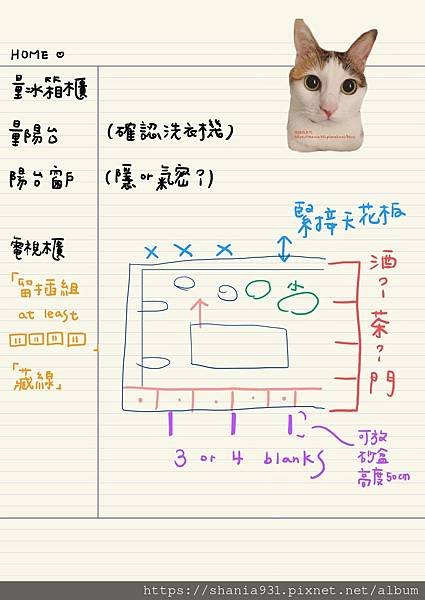 HOME ♡
量冰箱櫃
量陽台 (確認洗衣機)
陽台窗戶 (隱or氣密?)
電視櫃
緊接天花板
x x x
「留插組
at least
「藏線」
小
酒?
茶?
門
3 or 4 blanks
可放
砂盒
高度50cm
https://shania931.pixnet.net/album